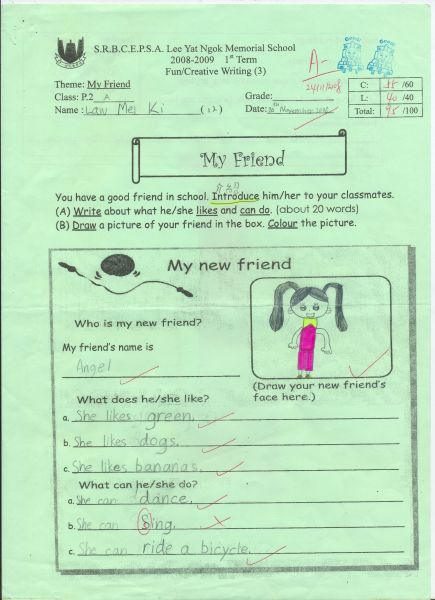 S.R.B.C.E.P.S.A. Lee Yat Ngok Memorial School
2008-2009 1st Term
Fun/Creative Writing (3)
A-
Good!
Good!
24/11/2008
C: 55 /60
L: 40 /40
Total: 95 /100
Theme: My Friend
Class: P.2 A
Grade:
Name: Law Mei Ki (12)
Date: 20th November 2008
My Friend
介紹
You have a good friend in school. Introduce him/her to your classmates.
(A) Write about what he/she likes and can do. (about 20 words)
(B) Draw a picture of your friend in the box. Colour the picture.
My new friend
Who is my new friend?
My friend's name is
Angel
(Draw your new friend's
face here.)
What does he/she like?
a. She likes green.
b. She likes dogs.
c. She likes bananas.
What can he/she do?
a. She can dance.
b. She can Sing.
c. She can ride a bicycle.